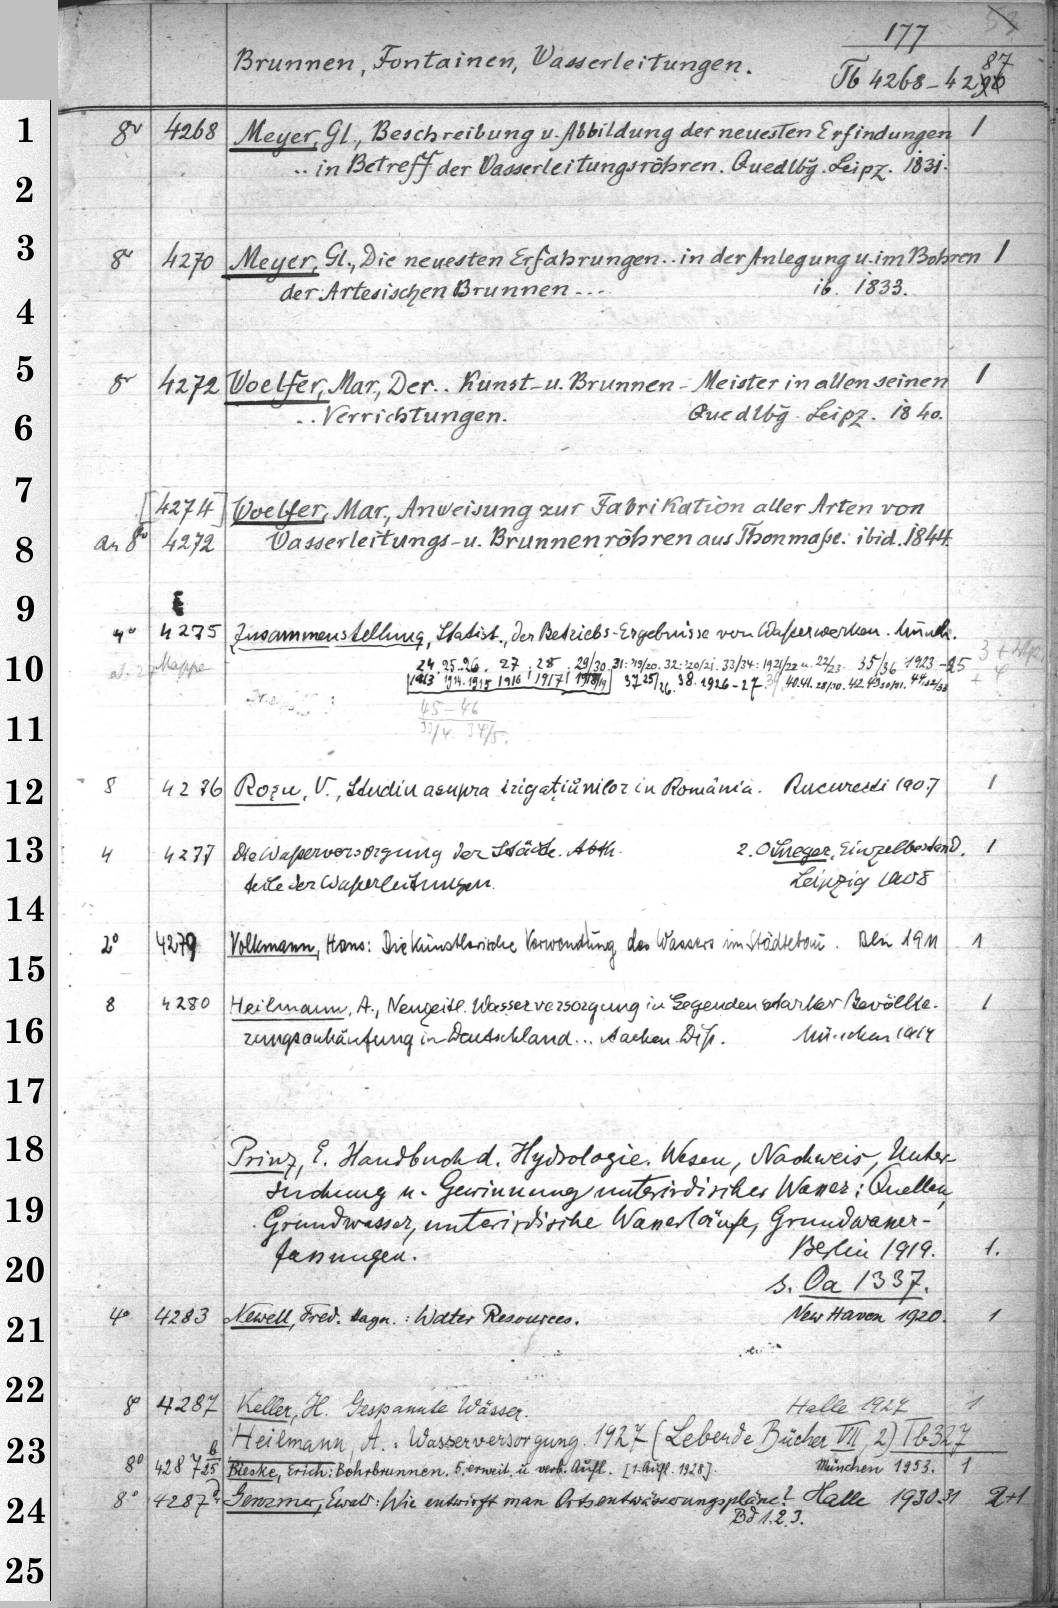 177 53
Brunnen, Fontainen, Wasserleitungen. Tb 4268-4290 87
1 8° 4268 Meyer, Gl., Beschreibung u. Abbildung der neuesten Erfindungen 1
.. in Betreff der Wasserleitungsröhren. Quedlbg. Leipz. 1831.
2
3 8° 4270 Meyer, Gl., Die neuesten Erfahrungen.. in der Anlegung u. im Bohren 1
der Artesischen Brunnen --- ib. 1833.
4
5 8° 4272 Woelfer, Mar, Der.. Kunst- u. Brunnen-Meister in allen seinen 1
.. Verrichtungen. Quedlbg. Leipz. 1840.
6
7 [4274] Woelfer, Mar., Anweisung zur Fabrikation aller Arten von
8 an 8° 4272 Wasserleitungs- u. Brunnenröhren aus Thonmaße. ibid. 1844.
9
4° 4275 Zusammenstellung, Statist., der Betriebs-Ergebnisse von Waßerwerken. Münch.
10 Mappe 24 25.26. 27 28 29/30 31: 19/20. 32: 20/21. 33/34: 1921/22 u. 22/23 35/36 1923-25 3 +
1913 1914. 1915 1916 1917 1918/19 37 25/26. 38. 1926-27 40.41. 28/30. 42.43 + 4
45-46
11 33/4. 34/5.
12 8 4276 Rozu, V., Studiu asupra irigaţiunilor in România. Bucuresti 1907 1
13 4 4277 Die Waßerversorgung der Städte. Abth. 2. O Smreger, Einzelbestand. 1
teile der Waßerleitungen. Leipzig 1908
14
15 2° 4279 Volkmann, Hans: Die künstlerische Verwendung des Wassers im Städtebau. Bln 1911 1
8 4280 Heilmann, A., Neuzeitl. Wasserversorgung in Gegenden starker Bevölke-
16 rungsanhäufung in Deutschland... Aachen. Diss. München 1914 1
17
18 Prinz, E. Handbuch d. Hydrologie. Wesen, Nachweis, Unter-
suchung u. Gewinnung unterirdischer Wasser: Quellen,
19 Grundwasser, unterirdische Wasserläufe, Grundwasser-
fassungen. Berlin 1919. 1.
20 s. Oa 1337.
21 4° 4283 Newell, Fred. Hayn.: Water Resources. New Haven 1920. 1
22 8° 4287 Keller, H. Gespannte Wässer. Halle 1927 1
Heilmann, A.: Wasserversorgung. 1927 (Lebende Bücher VII, 2) Tb 327
23 8° 4287 b/25 Bieske, Erich: Bohrbrunnen. 5. erweit. u. verb. Aufl. [1. Aufl. 1928]. München 1953. 1
24 8° 4287 a Genzmer, Ewald: Wie entwirft man Ortsentwässerungspläne? Halle 1930.31 2+1
Bd 1.2.3.
25